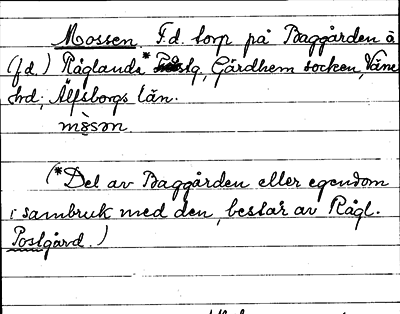 Mossen. F.d. torp på Baggården ä
(f.d.) Råglanda* Gärdhem socken, Väne
hd; Älfsborgs län.
mòsən

(*Del av Baggården eller egendom
i sambruk med den, består av Rågl.
Postgård.)